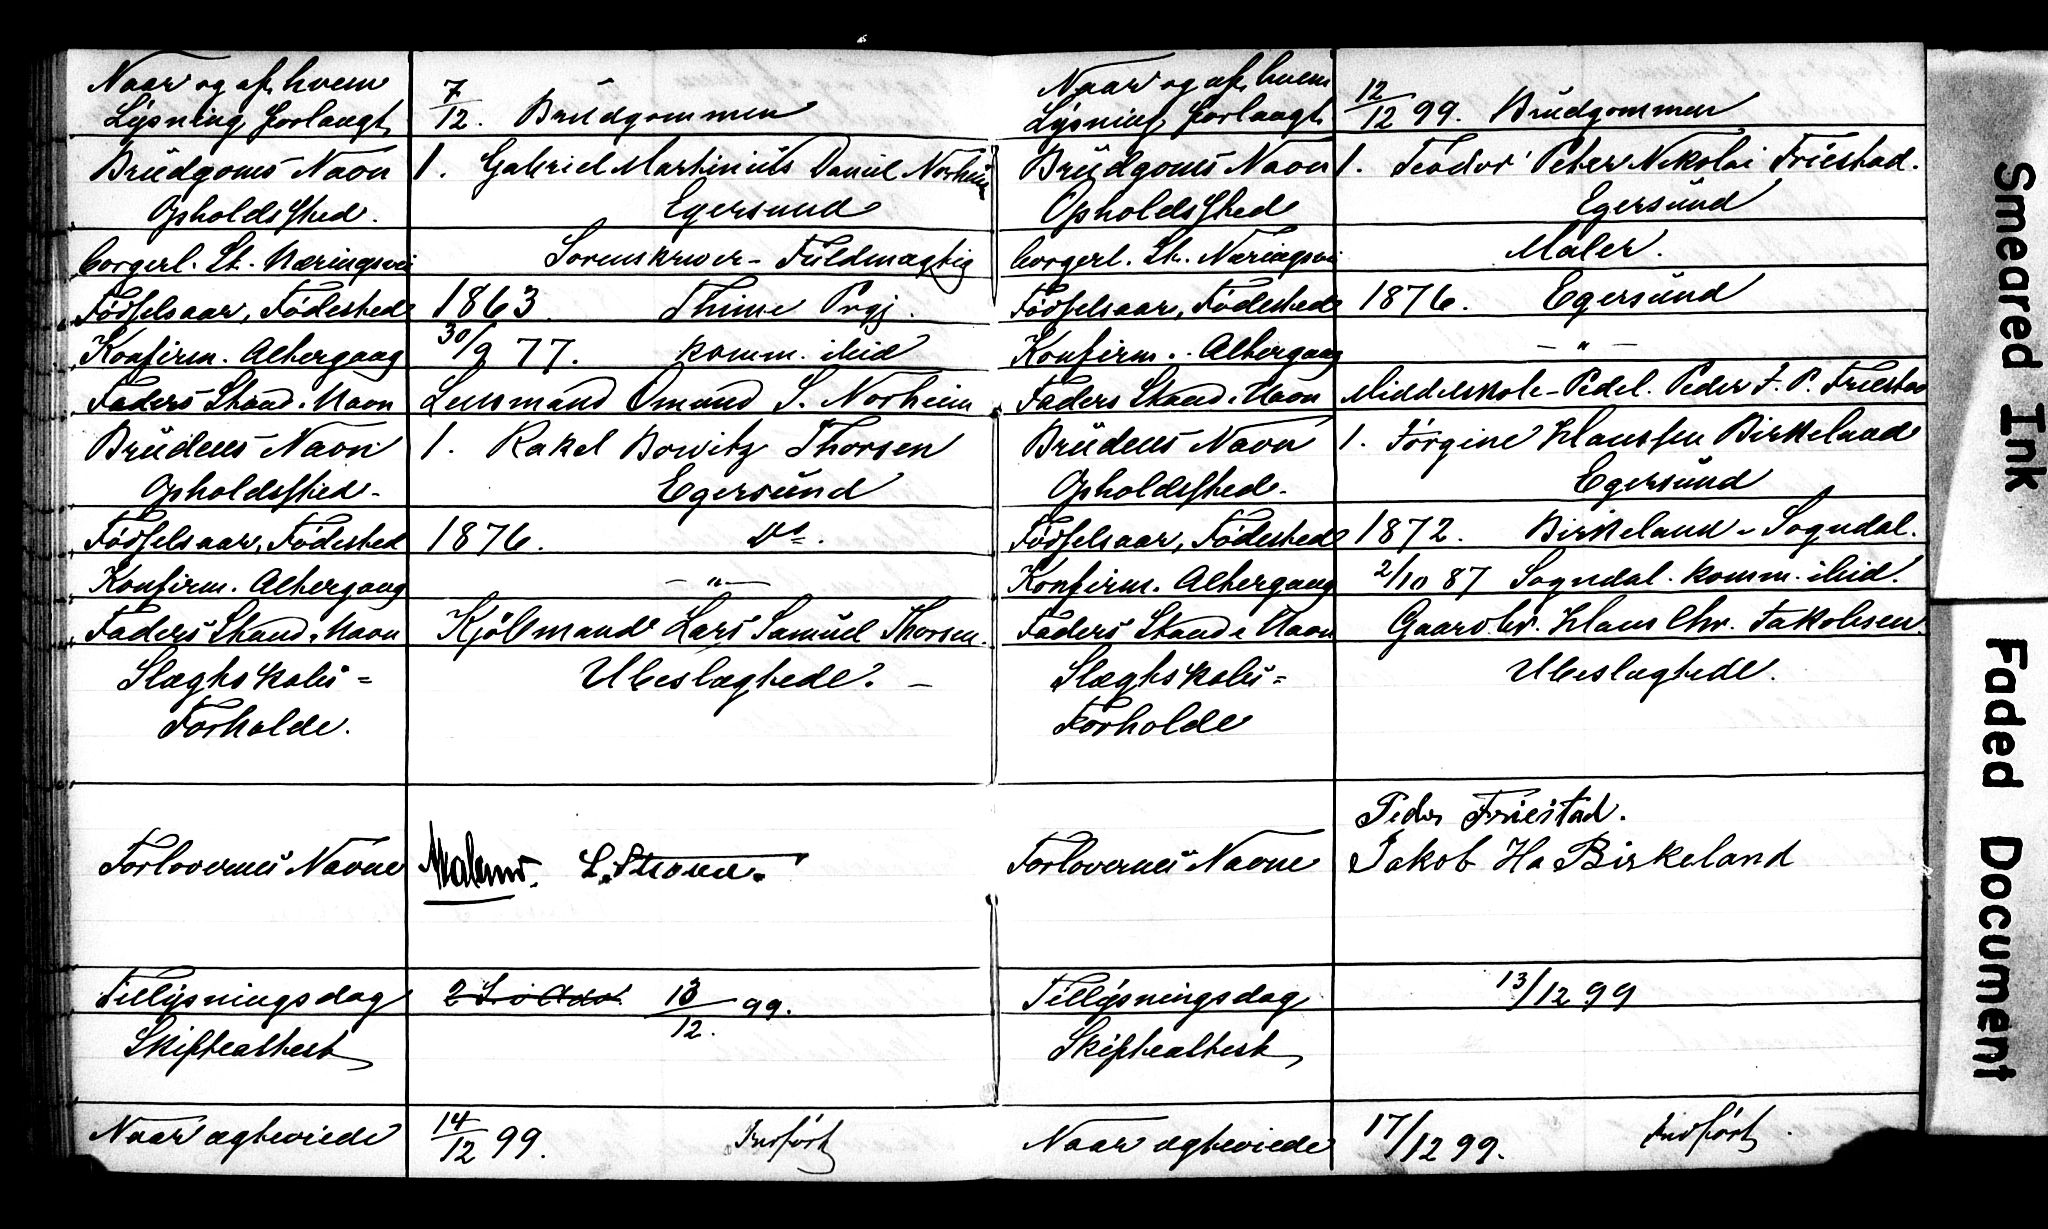 Naar og af hvem
Lysning forlangt 7/12. Brudgommen
Brudgoms Navn 1. Gabriel Martinius Daniel Norheim
Opholdssted. Egersund
borgerl. St. Næringsvei Sorenskriver-Fuldmægtig
Fødselsaar, Fødested 1863. Thime Prgj.
Konfirm. Altergang 30/9 77. komm. ibid
Faders Stand. Navn Lensmand Omund S. Norheim
Brudens Navn 1. Rakel Bowitz Thorsen
Opholdssted- Egersund
Fødselsaar, Fødested 1876. Do.
Konfirm. Altergang — " —
Faders Stand. Navn Lars Samuel Thorsen.
Slægtskabs=
Forholde. Ubeslægtede. –
Forlovernes Navne L.
Tillysningsdag 13/12. 99.
Skifteattest
Naar ægteviede 14/12 99. Indført
Naar og af hvem
Lysning forlangt 12/12 99. Brudgommen
Brudgoms Navn 1. Teodor Peter Nikolai Friestad.
Opholdssted Egersund
borgerl. St. Næringsvei Maler.
Fødselsaar, Fødested 1876. Egersund
Konfirm. Altergang — " —
Faders Stand. Navn Middelskole-Pedel. Peder F. P. Friestad
Brudens Navn 1. Jørgine Klaussen Birkeland
Opholdssted- Egersund
Fødselsaar, Fødested 1872. Birkeland - Sogndal.
Konfirm. Altergang 2/10 87 Sogndal. komm. ibid.
Faders Stand. Navn Gaardbr. Klaus Chr. Jakobsen.
Slægtskabs= Ubeslægtede.
Forholde
Peder Friestad.
Forlovernes Navne Jakob Ha Birkeland
Tillysningsdag 13/12 99
Skifteattest
Naar ægteviede 17/12 99. Indført.
Smeared Ink
Faded Document